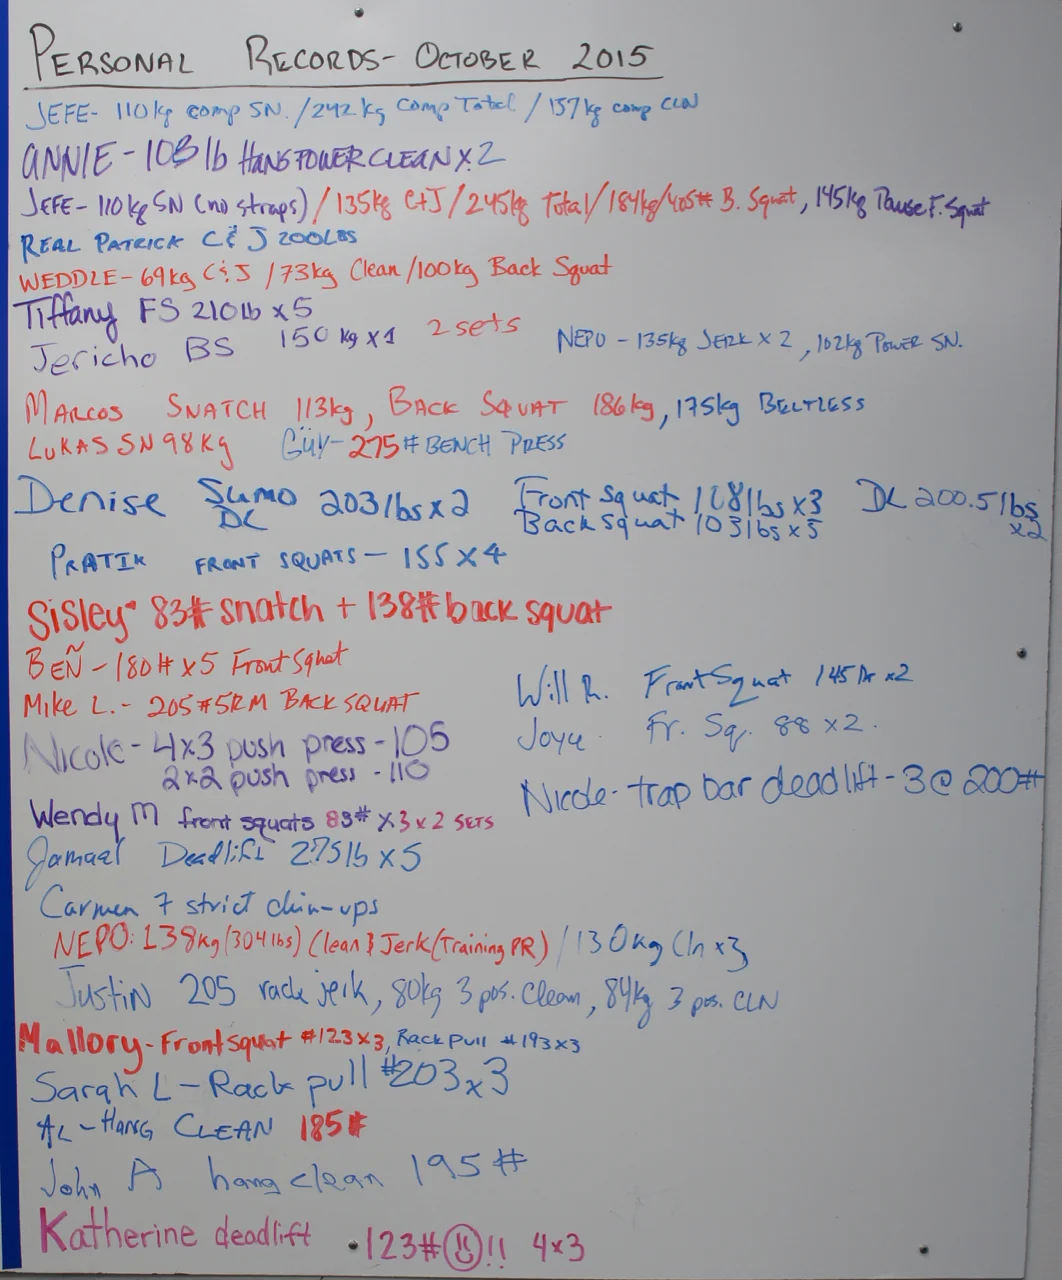 PERSONAL RECORDS - OCTOBER 2015
JEFE- 110kg comp SN. /242kg comp Total /137kg comp CLN
ANNIE - 103 lb HANG POWER CLEAN X 2
JEFE- 110kg SN (no straps) / 135kg C+J / 245kg Total / 184kg/405# B. Squat, 145kg Pause F. Squat
REAL PATRICK C & J 200LBS
WEDDLE- 69kg C & J / 73kg Clean /100kg Back Squat
Tiffany FS 210lb x 5
Jericho BS 150 kg x 1 2 sets
NEPO - 135kg JERK X 2, 102kg POWER SN.
MARCOS SNATCH 113kg, BACK SQUAT 186kg, 175kg BELTLESS
LUKAS SN 98Kg GÜY- 275# BENCH PRESS
Denise Sumo DL 203 lbs x 2 Front squat 108 lbs x 3 DL 200.5 lbs x2
Back squat 103 lbs x 5
PRATIK FRONT SQUATS - 155 X 4
Sisley• 83# snatch + 138# back squat
BEÑ - 180# x 5 Front Squat
Mike L. - 205# 5RM BACK SQUAT
Will R. Front Squat 145 x2
Fr. Sq. 88 x 2.
Nicole - 4x3 push press - 105
2x2 push press - 110
Nicole - trap bar deadlift - 3 @ 200#
Wendy M front squats 83# x 3 x 2 SETS
Jamaal Deadlift 275 lb x 5
Carmen 7 strict chin-ups
NEPO: 138Kg (304 lbs) Clean & Jerk (Training PR) / 130kg Cln x 3
Justin 205 rack jerk, 80kg 3 pos. Clean, 84kg 3 pos. CLN
Mallory - Front squat #123 x 3, Rack Pull #193 x 3
Sarah L - Rack pull #203 x 3
AL - HANG CLEAN 185#
John A hang clean 195 #
Katherine deadlift • 123# !! 4x3